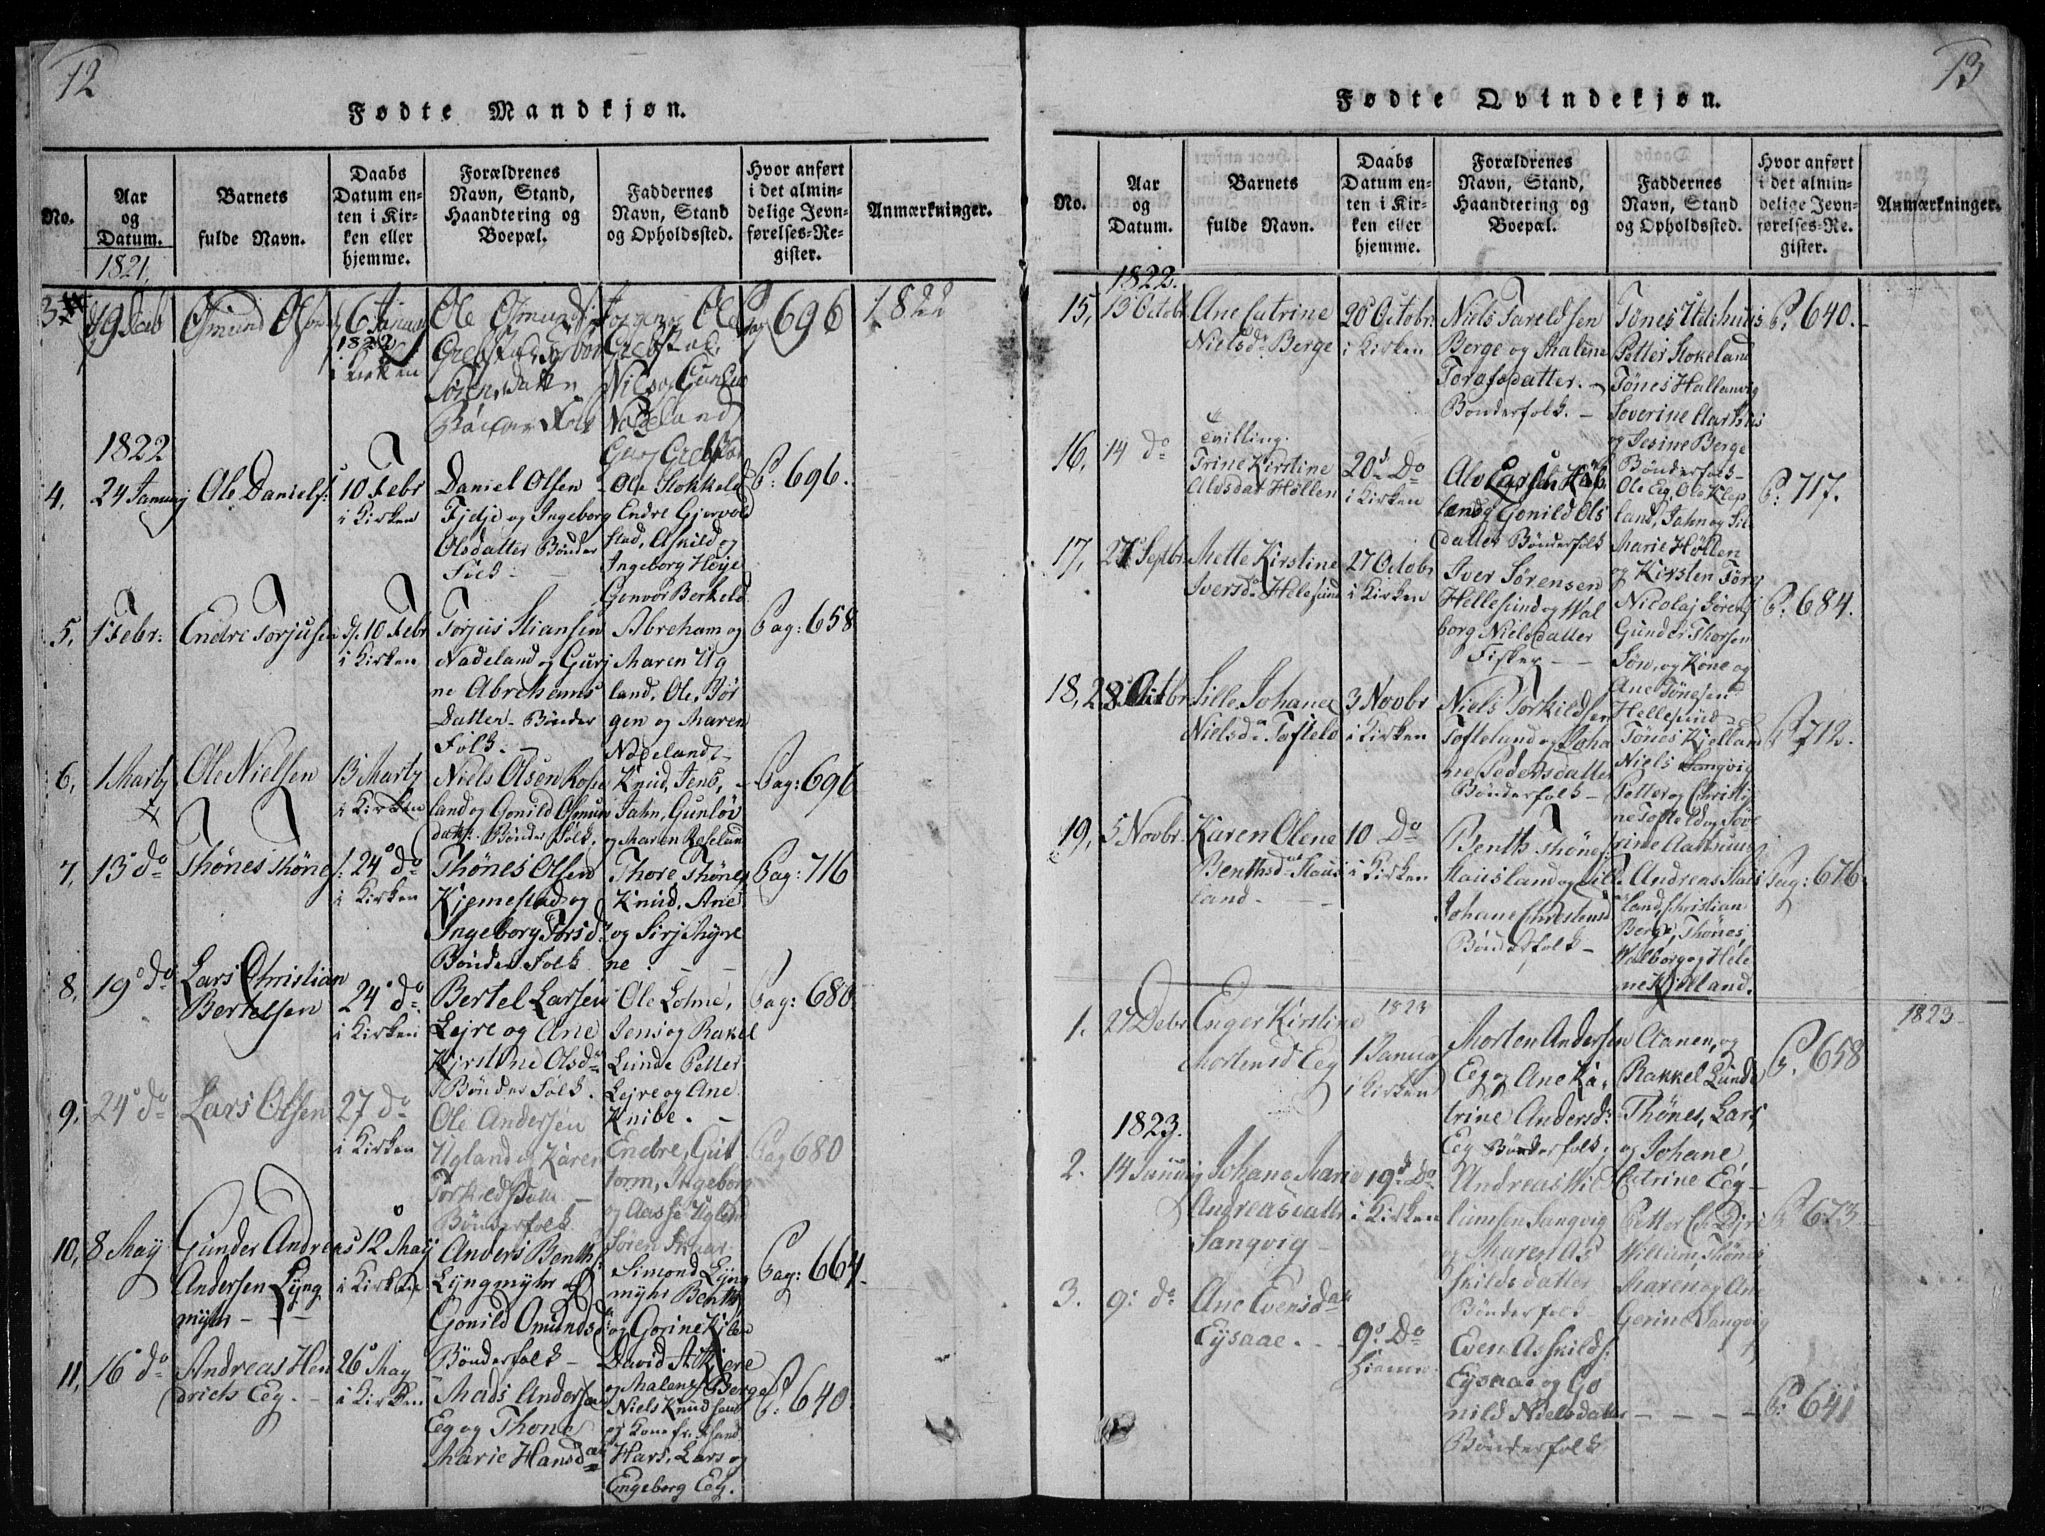 12
Fødte Mandkjøn.
No.
Aar
og
Datum.
Barnets
fulde Navn.
Daabs
Datum en-
ten i Kir-
ken eller
hjemme.
Forældrenes
Navn, Stand,
Haandtering og
Boepæl.
Faddernes
Navn, Stand
og Opholdssted.
Hvor anført
i det almin-
delige Jevn-
førelses-Re-
gister.
Anmærkninger.
1821
3
19 Deb
Osmund Ols
6 Januar
1822
i Kirken
Ole Osmunds
696
1822
1822
4,
24 Januarj
Ole Daniels:
10 Febr
i Kirken
Daniel Olsen
Fjelje og Ingeborg
Olsdatter Bønder
Folk
Ole Stokkeld
Endre Gjervold
stad, Askild og
Ingeborg Høye
Gonvor Berkeld
P: 696.
5,
1 Febr:
Endre Torjusen
10 Febr
i Kirken
Torjus Stiansen
Nadeland og Gurj
ne Abrehams
Datter Bønder
Folk
Abreham og
Maren Ug
land, Ole, Jør
gen og Maren
Nodeland
Pag: 658
6,
1 Marty
Ole Nielsen
13 Marty
i Kirken
Niels Olsen Rose
land og Gonild Osmun
datt: Bønder Folk.
Knud, Jens,
Jahn, Gunløv
og Maren Roseland
Pag: 696
7,
13 do
Thønes Thønes:
24 do
i Kirken
Thønes Olsen
Kjemestad og
Ingeborg Torsd:
Bønder Folk
Thore Thønes
Knud, Ane
og Sirj Myre
ne
Pag: 716
8,
19 do
Lars Christian
Bertelsen
24 do
i Kirken
Bertel Larsen
Lejre og Ane
Kirstine Olsd
Bønder Folk.
Ole Lohne,
Jens og Rakel
Lunde Petter
Lejre og Ane
Knibe.
Pag: 680
9,
24 do
Lars Olsen
27 do
i Kirken
Ole Andersen
Ugland og Karen
Torkelsdatt
Bønderfolk
Endre, Gut
torm, Ingeborg
og Aasse Ugland
Søren Skaar
Pag 680
10,
8 May
Gunder Andreas
Andersen Lyng
myhr
12 May
i Kirken
Anders Benth:
Lyngmyhr og
Gonild Omundsd
Bønderfolk
Simond Lyng
myhr Benth
og Gorine Kilen
Pag: 664.
11,
16 do
Andreas Hen
drich Eeg.
26 May
i Kirken
Mads Andersen
Eeg og Thone
Marie Hansd
David A Kjere
og Malene Berge
Niels Knudsen
og Kone fr. Chsand
Hars, Lars og
Engeborg Eeg.
P: 640
13
Fødte Qvindekjøn.
No.
Aar
og
Datum.
Barnets
fulde Navn.
Daabs
Datum en-
ten i Kir-
ken eller
hjemme.
Forældrenes
Navn, Stand,
Haandtering og
Boepæl.
Faddernes
Navn, Stand
og Opholdssted.
Hvor anført
i det almin-
delige Jevn-
førelses-Re-
gister.
Anmærkninger.
1822.
15,
13 Octobr
Ane Catrine
Nielsd. Berge
20 Octobr:
i Kirken
Niels Tareldsen
Berge og Malene
Torasdatter.
Bonderfolk.
Tønes Udshuus
Petter Stokeland
Tønes Hallanvig
Severine Aarhus
og Gesine Berge
Bønderfolk
P: 640.
16,
14 do
Tvilling.
Trine Kirstine
Alvsdat Høllen
20 Do
i Kirken
og Gonild Ols
datter Bønderfolk
Ole Eg, Ole Klep
land, Jahn og Sil
Marie Høllen
og Kirsten
P: 717.
17,
27 Septbr
Mette Kirstine
Iversd. Helesund
27 Octobr
i Kirken
Iver Sørensen
Hellesund og Wal
borg Nielsdatter
Fisker
Nicolaj Sørens
Gunder Thorsen
Søn, og Kone og
Ane Tønesen
Hellesund
P: 684.
18,
28 Octbr
Sille Johane
Nielsd. Toftelo
3 Novbr
i Kirken
Niels Torkildsen
Toftelund og Joha
ne Pedersdatter
Bønderfolk
Tønes Kjelland
Niels Langvig
Petter og Christj
ne Tofteld og Sove
rine Aarhuus
P 712.
19,
5 Novbr
Karen Olene
Benthsd. Staus
land
10 Do
i Kirken
Benth Thønes:
Stausland og Sille
Johane Christensd
Bønderfolk
Andreas Staus
land, Christian
Berge, Thønes
Walborg og Hele
ne Kjelland.
Pag: 676
1.
27 Debr
Enger Kirstine
Mortensd Eeg
1823
1 Januarj
i Kirken
Morten Andersen
Eeg og Ane Ka
trine Andersd:
Eeg Bønderfolk.
Aanen, og
Rakkel Lunde
Thønes, Lars
og Johane
Catrine Eeg
P. 658
1823
1823.
2.
14 Januarj
Johane Marie
Andreasdatter
Langvig
19 Do
i Kirken
Andreas Wil
lumsen Langvig
og Maren As
kildsdatter
Bønderfolk
Willum, Thønes
Maren og An
Gerine Langvig
P 673
3.
9 do
Ane Evensdatt
Eysaae.
9 Do
hiemme
Even Askilds:
Eysaae og Go
nild Nielsdatter
Bønderfolk
P: 641